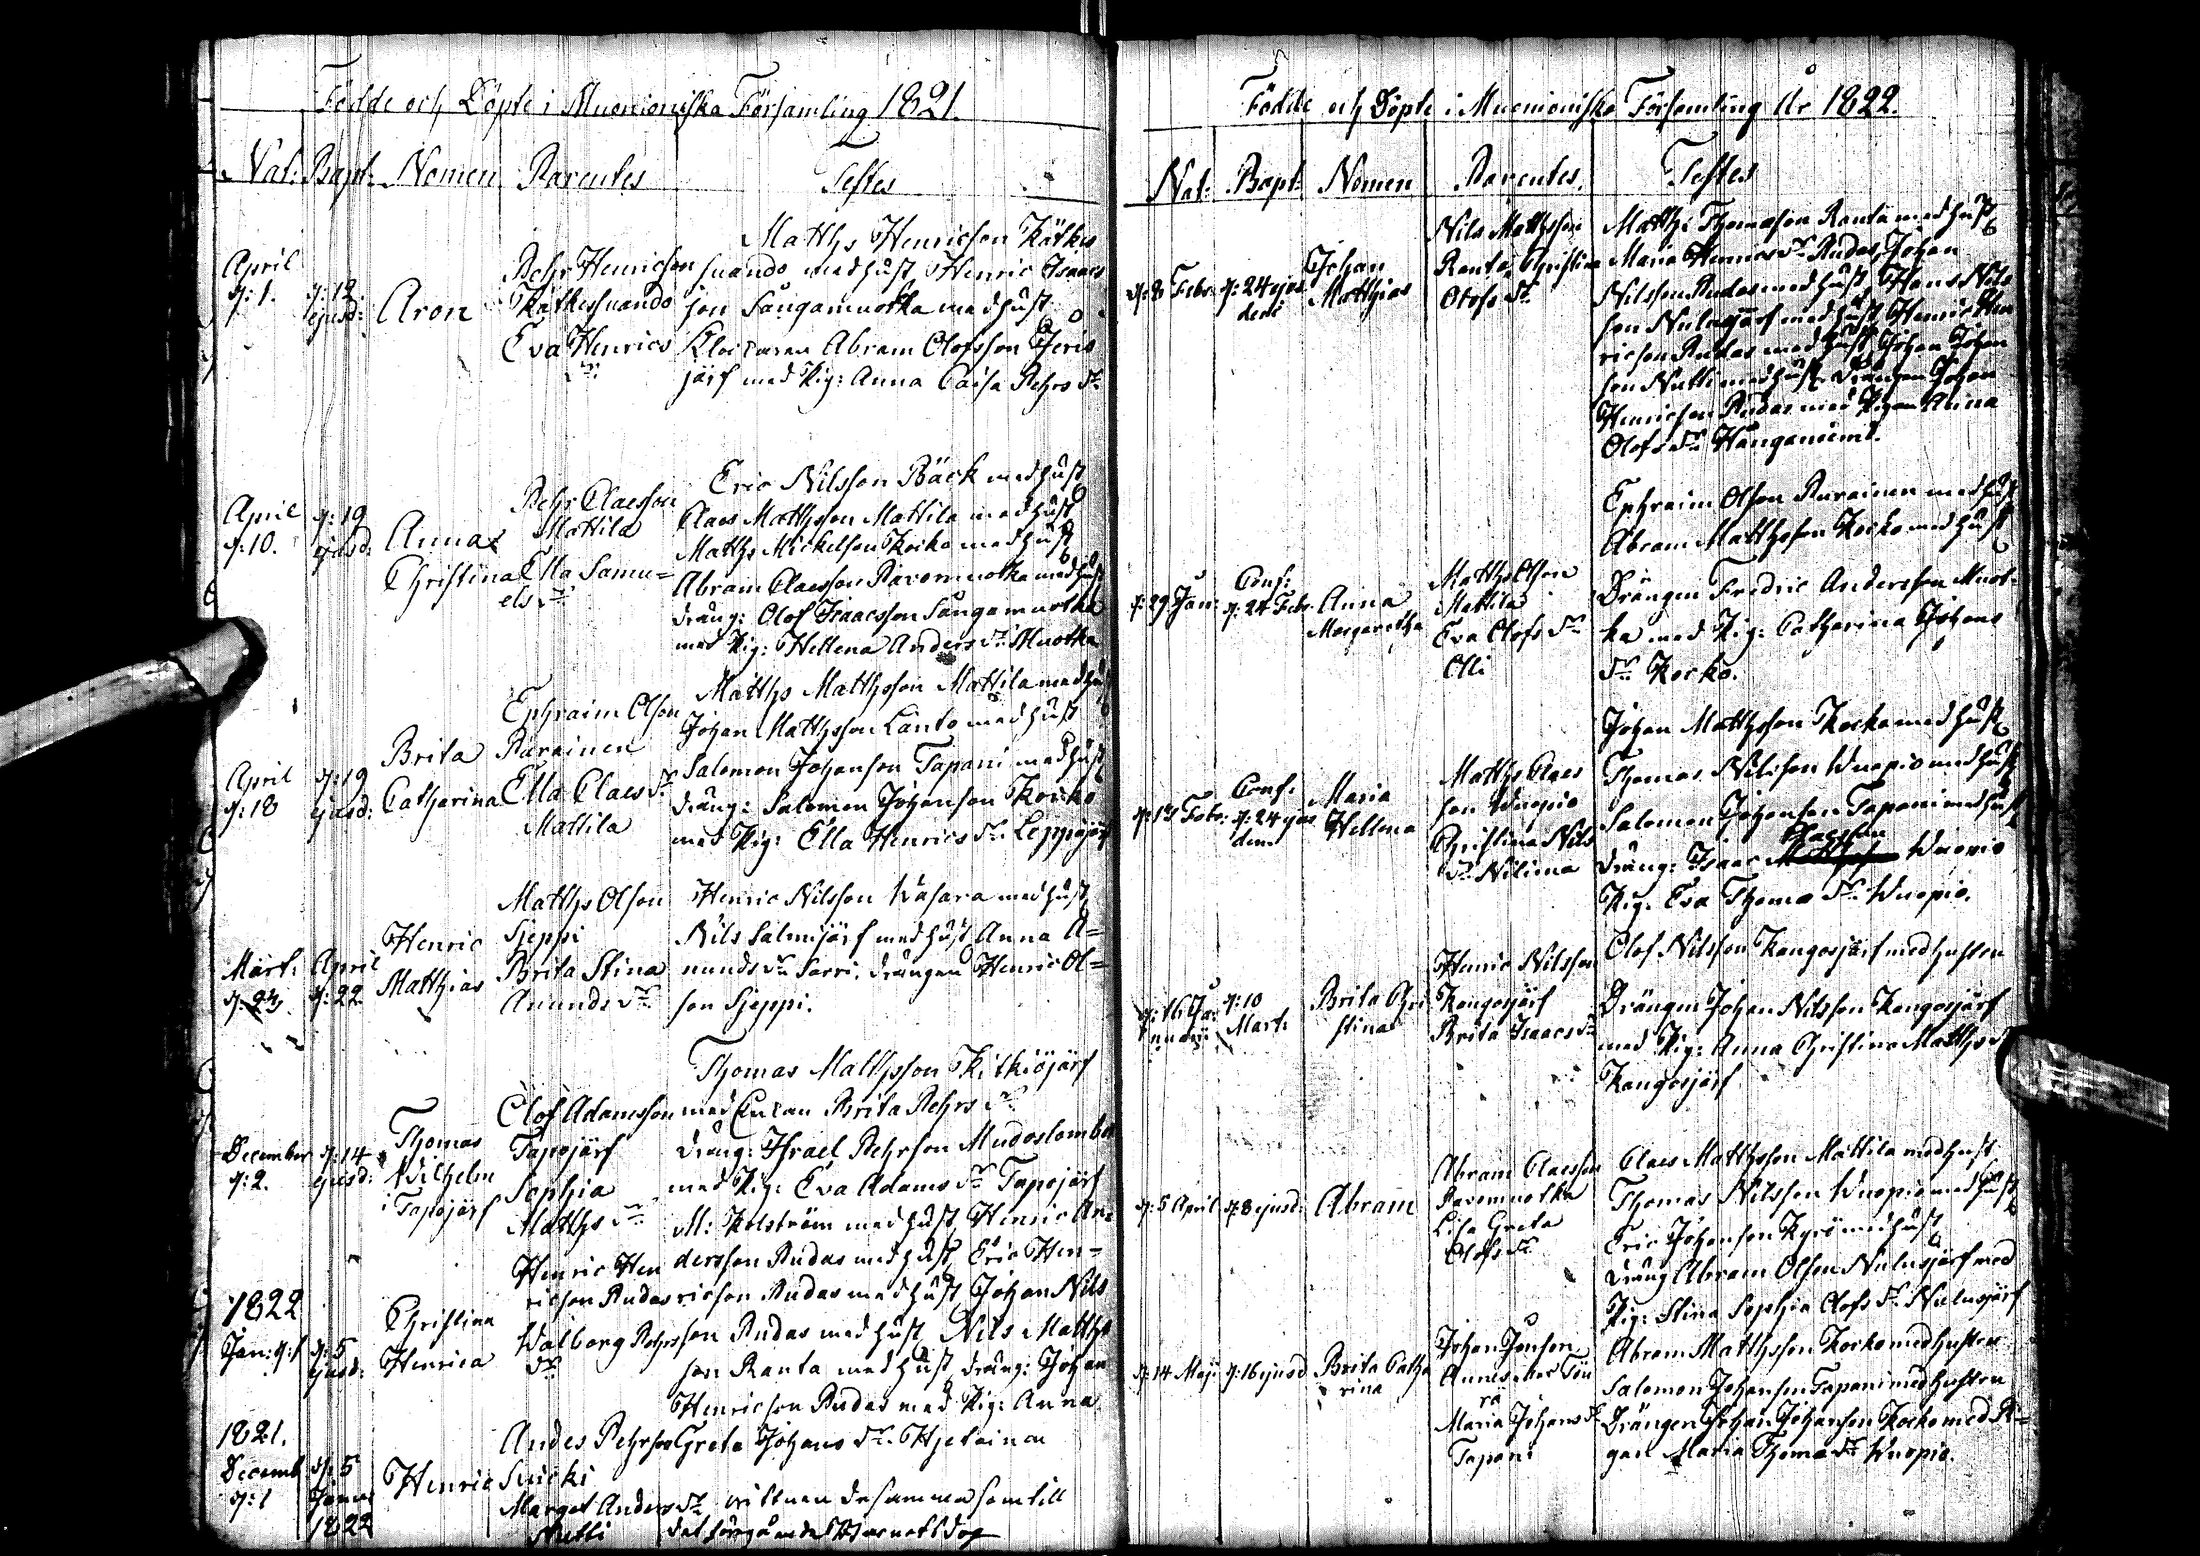 Födde och Döpte i Muonioniska Församling 1821.
Nat: Bapt: Nomen Parentes Testes
April d: 1.
d: 12 ejusd:
Aron
Pehr Henricson
Kätkesuando
Eva Henrics
dr
Matths Henricson Kätke
suando med hust, Henric Isaacs
son Sångamuotka med hust
Klockaren Abram Olofsson Jeris
järf med Pig: Anna Caisa Pehrs dr
April d: 10.
d: 19 ejusd:
Anna
Christina
Pehr Claesson
Mattila
Ella Samu=
els dr
Eric Nilsson Bäck med hust
Claes Matthsson Mattila med hust
Matths Mickelson Kocko med hust
Abram Claesson Pavomuotka med hust
dräng: Olof Isaacsson Sångamuotka
med Pig: Hellena Anders dr Muotka
April d: 18
d: 19 ejusd:
Brita
Catharina
Ephraim Olson
Rärainen
Ella Claes dr
Mattila
Matths Matthsson Mattila med hust
Johan Matthsson Lanto med hust
Salomon Johanson Tapani med hust
dräng: Salomon Johanson Kocko
med Pig: Ella Henrics dr Leppäjärf
Mart: d: 23
April d: 22
Henric
Matthias
Matths Olson
Sjeppi
Brita Stina
Anunds dr
Henric Nilsson Wasara med hust,
Nils Salmijärf med hust, Anna A=
nunds dr Sarri, drängen Henric Ol=
son Sjeppi.
December d: 2.
d: 14 ejusd:
Thomas
Wilhelm
i Tapojärf
Olof Adamsson
Tapojärf
Sophia
Matths dr
Thomas Matthsson Kitkiöjärf
med Enkan Brita Pehrs dr
dräng: Israel Pehrson Mudoslombo
med Pig: Eva Adams dr Tapojärf
1822
Jan: d: 1
d: 5 ejusd:
Christina
Henrica
Henric Hen
ricson Rudas
Walborg Pehrs
dr
M: Kolström med hust, Henric An
dersson Rudas med hust, Eric Hen=
ricson Rudas med hust Johan Nils
son Rudas med hust, Nils Matths
son Ranta med hust, dräng: Johan
Henricson Rudas med Pig: Anna
Greta Johans dr Hietainen
1821.
Decemb d: 1
d: 5 Januar 1822
Henric
Andes Pehrson
Suicki
Marget Anders dr
vittnen desamma som till
det föregående barnets dop
Födde och Döpte i Muonioniska Församling År 1822.
Nat: Bapt: Nomen Parentes Testes
d: 8 Febr:
d: 24 ejus
dem
Johan
Matthias
Nils Matthsson
Ranta, Christina
Olofs dr
Matths Thomasson Ranta med hust
Maria Henrics dr Rudas, Johan
Nilsson Rudas med hust, Hans Nils
son Nulusjärf med hust, Henric Hen
ricson Rudas med hust, Johan Johan
son Nutti med hust, Drängen Johan
Henricson Rudas med Pigan Anna
Olofs dr Hanganiemi.
d: 29 Jan:
Conf:
d: 24 Febr
Anna
Margaretha
Matths Olson
Mattila
Eva Olofs dr
Olli
Ephraim Olson Rurainen med hust
Abram Matthsson Kocko med hust
Drängen Fredric Andersson Muot
ka med Pig: Catharina Johans
dr Kocko.
d: 13 Febr:
Conf:
d: 24 ejus
dem
Maria
Hellena
Matths Claes
son Wuopio
Christina Nils
dr Nilima
Johan Matthsson Kocko med hust
Thomas Nilsson Wuopio med hust
Salomon Johanson Tapani med hust
dräng: Isaac Claesson Wuopio
Pig: Eva Thoma dr Wuopio.
d: 16 Ja
nuarii
d: 10
Mart:
Brita Chri
stina
Henric Nilsson
Kangosjärf
Brita Isaacs dr
Olof Nilsson Kangosjärf med hustru
Drängen Johan Nilsson Kangosjärf
med Pig: Anna Christina Matths dr
Kangosjärf
d: 5 April
d: 8 ejusd:
Abram
Abram Claesson
Pavomuotka
Lisa Greta
Olofs dr
Claes Matthsson Mattila med hust
Thomas Nilsson Wuopio med hust
Eric Johanson Kyrö med hust
dräng Abram Olson Nulusjärf med
Pig: Stina Sophia Olofs dr Nulusjärf
d: 14 Maji
d: 16 ejusd
Brita Catha
rina
Johan Jonson
Maria Johans dr
Tapani
Abram Matthsson Kocko med hustru
Salomon Johanson Tapani med hustru
Drängen Johan Johanson Kocko med Pi=
gan Maria Thoma dr Wuopio.